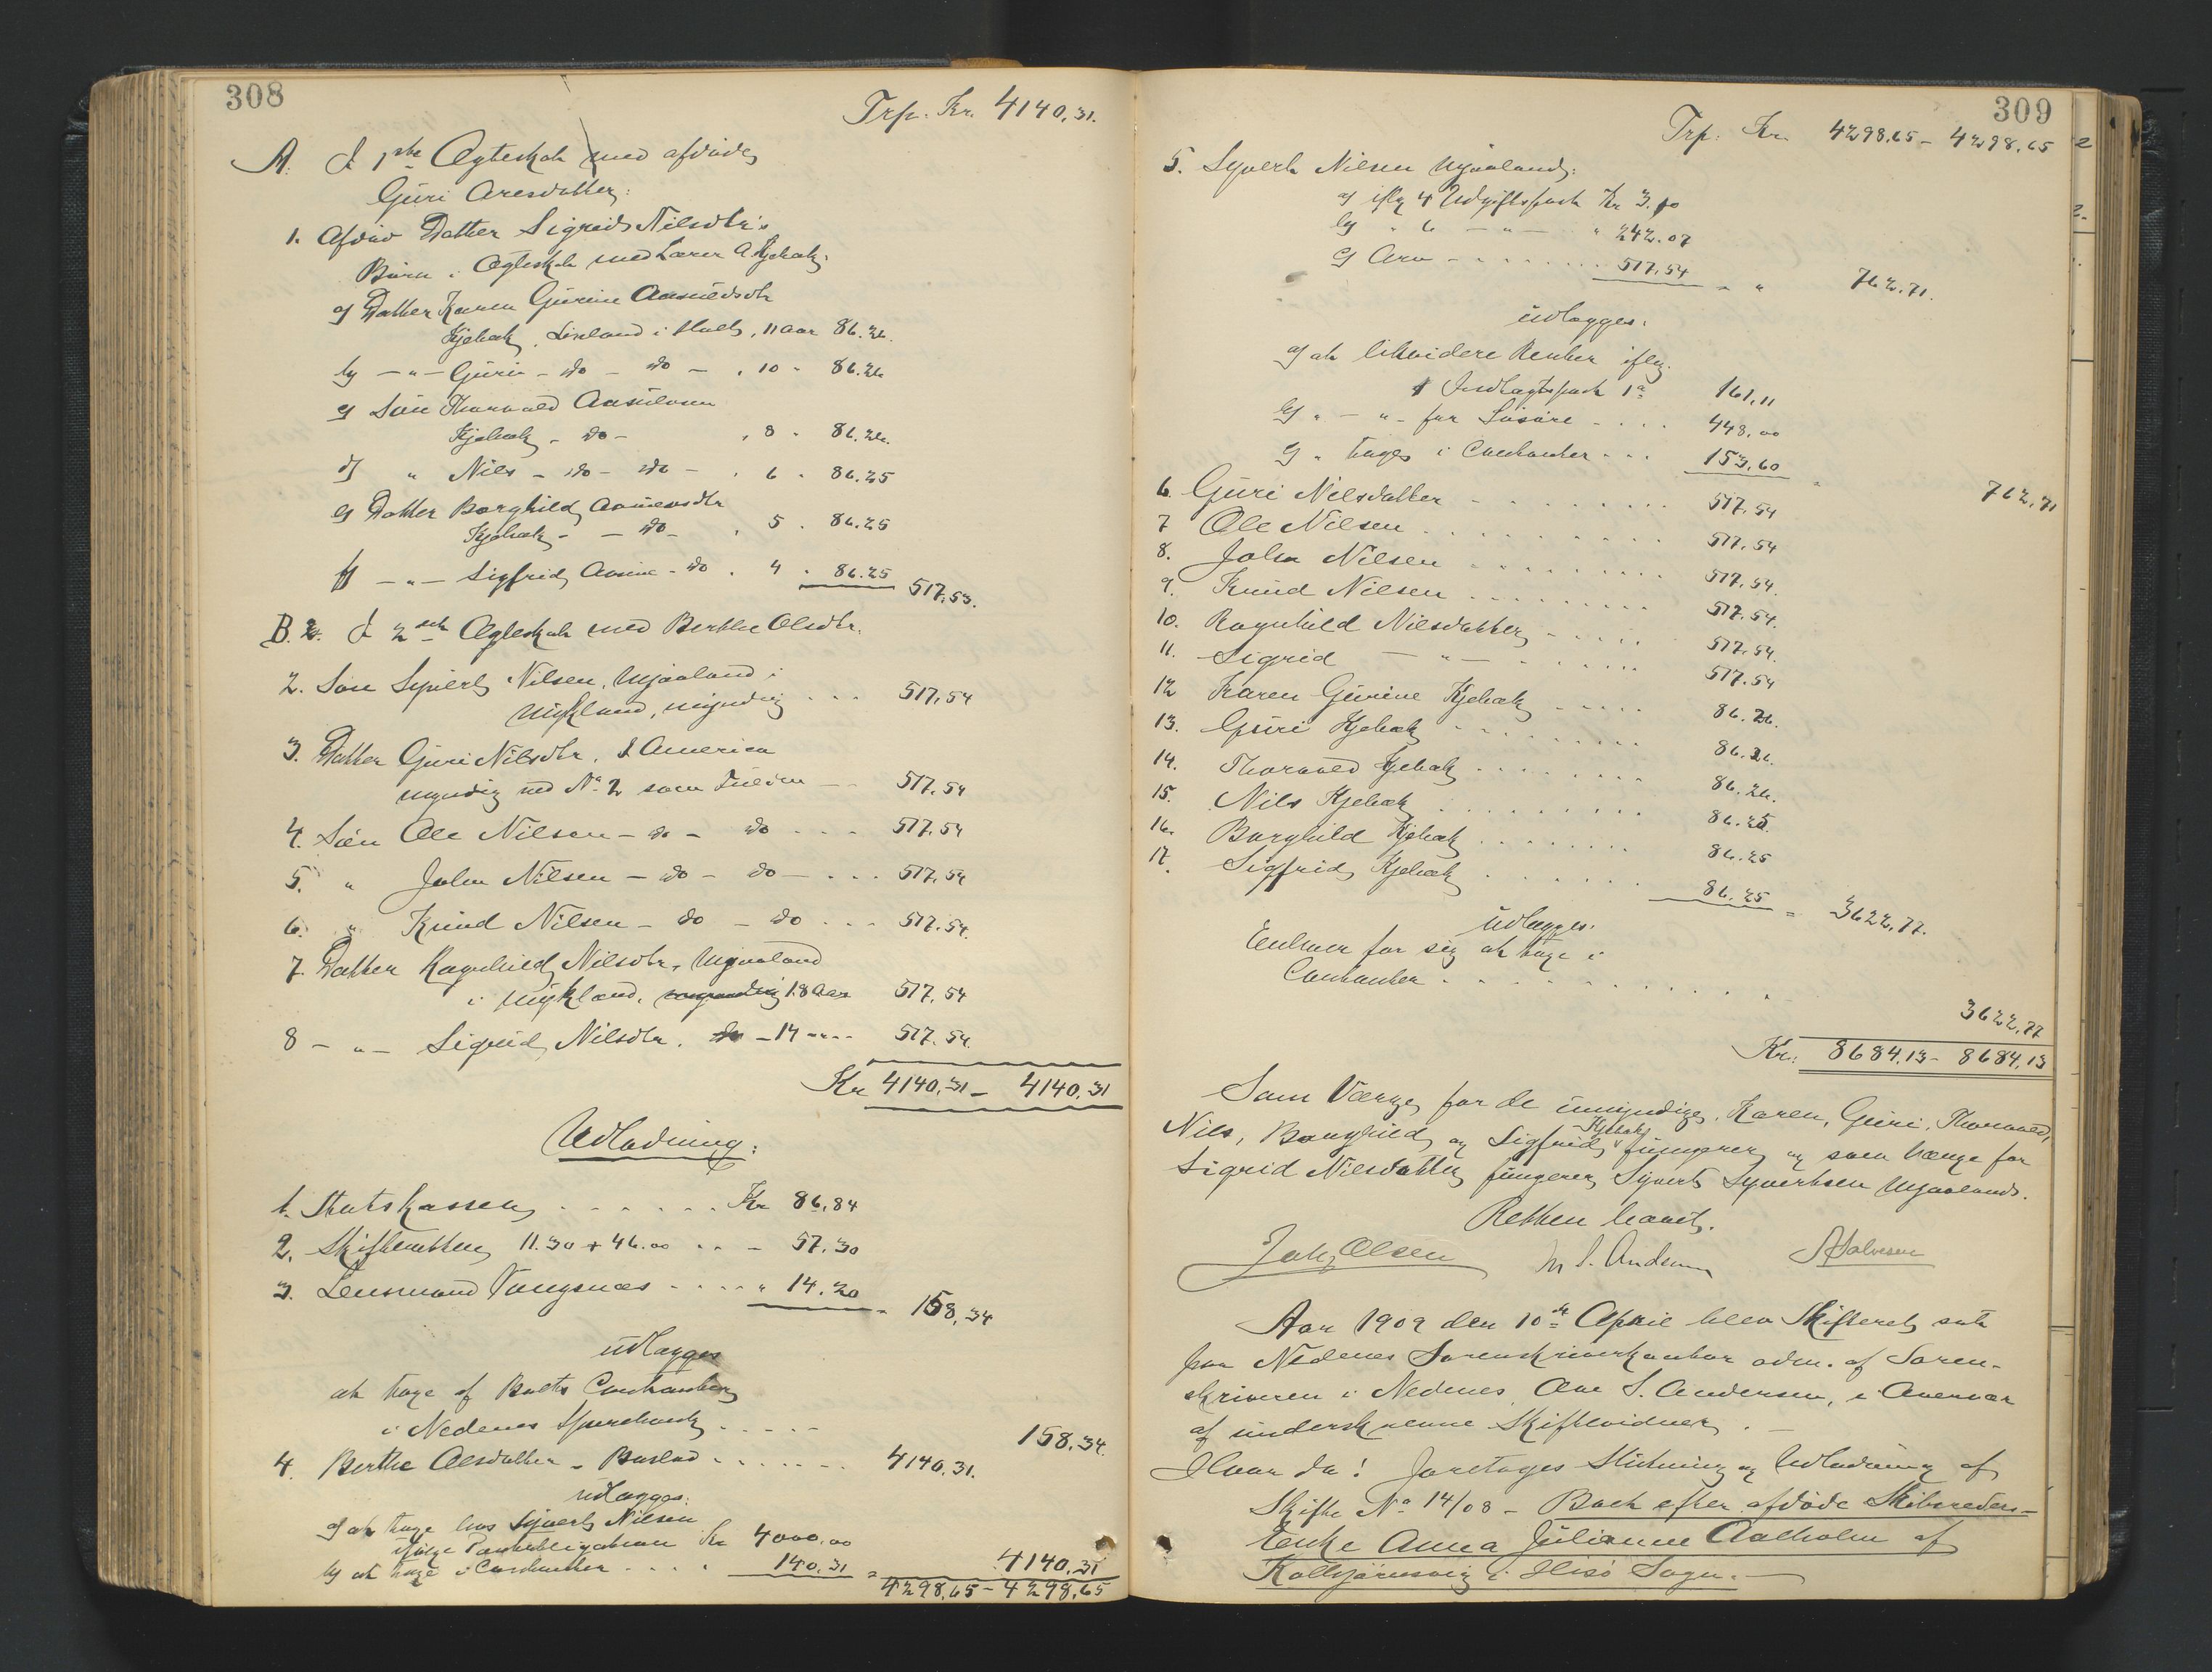 308
Trp. Kr. 4140.31.
A. I 1ste Ægteskab med afdøde
Guri Aresdatter:
1. Afdød Datter Sigrid Nilsdtr's
Børn i Ægteskab med Lærer A Kjebæk:
a) Datter Karen Gurine Aasulvsdtr
Kjebæk, i Holt, 11 aar 86.26.
b) — " — Guri — do — do — , 10 " 86.26
c) Søn Thorvald Aasulvsen
Kjebæk — do — , 8 " 86.26.
d) " Nils — do — do — , 6 " 86.25
e) Datter Borghild Aasulvsdtr
Kjebæk — — do — , 5 " 86.25
f) — " — Sigfrid — do , 4 " 86.25 517.53.
B. I 2det Ægteskab med Berthe Olsdtr.
2. Søn Syvert Nilsen, Mjaaland i
Mykland, myndig . . . 517,54
3. Datter Guri Nilsdtr, I America
myndig med No 2 som — 517.54
4. Søn Ole Nilsen — do — do . . . 517.54
5. " John Nilsen — do — do — . . . 517.54
6. " Knud Nilsen — do — do . . . 517.54.
7. Datter Ragnhild Nilsdtr, Mjaaland
i Mykland, 18 Aar 517.54
8 — " — Sigrid Nilsdtr. do — 14 — " — 517.54.
Kr 4140,31 — 4140,31
Udlodning:
1. Statskassen . . . . . . Kr 86.84
2. Skifteretten 11.30 + 46.00 . . — 57.30
3. Lensmand Vangsnes . . . . " 14.20 = 158,34
udlægges
at tage af Boets Contanter
i Nedenes Sparebank . . . . . 158.34.
4. Berthe Olsdatter — Boslod . . . . . . 4140.31.
udlægges:
a) at tage hos Syvert Nilsen
ifølge Panteobligation Kr 4000.00
b) at tage i Contanter . . . . 140.31 = 4140,31
4298,65 — 4298,65
309
Trp. Kr. 4298.65 — 4298,65
5. Syvert Nilsen Mjaaland:
a) iflg 4 Udgiftspost Kr 3.10
b) " 6 — " — " 242.07
c) Arv . . . . . . . . 517.54 " " 762,71.
udlægges:
a) at likvidere Renter iflg.
Indtægtspost 1a 161,11
b) " — " — for Løsøre . . . . 448,00
c) " tages i Contanter . . . 153,60 " 762,71
6. Guri Nilsdatter . . . . . . . . . 517.54
7 Ole Nilsen . . . . . . . . . . 517.54
8. John Nilsen . . . . . . . . . 517.54.
9. Knud Nilsen . . . . . . . . . 517.54.
10. Ragnhild Nilsdatter . . . . . 517.54.
11. Sigrid — " — . . . . . . . . 517.54
12 Karen Gurine Kjebæk . . . . . 86.26.
13. Guri Kjebæk . . . . . . . . . 86.26.
14. Thorvald Kjebæk . . . . . . . . 86.26.
15. Nils Kjebæk . . . . . . . . . 86.25.
16. Borghild Kjebæk . . . . . . . . 86.25
17. Sigfrid Kjebæk . . . . . . . 86.25 = 3622,77.
udlægges:
Enhver for sig at tage i
Contanter . . . . . . . . . . . . 3622,77
Kr. 8684.13 — 8684,13
Som Værge for de umyndige, Karen, Guri, Thorvald,
Nils, Borghild og Sigfrid Kjebæk fungerer og som Værge for
Sigrid Nilsdatter fungerer Syvert Syvertsen Mjaaland.
Retten hævet.
Joh. Olsen M. S. Andersen A Halvorsen
Aar 1909 den 10de April blev Skifteret sat
paa Nedenes Sorenskriverkontor adm. af Soren-
skriveren i Nedenes S. Andersen, i Overvær
af underskrevne Skiftevidner.
Hvor da! foretages Slutning og Udlodning af
Skifte No 14/08 — Boet efter afdøde Skibsreder-
Enke Anna Julianne Aalholm af
Kolbjørnsvig i Hisø Sogn. —